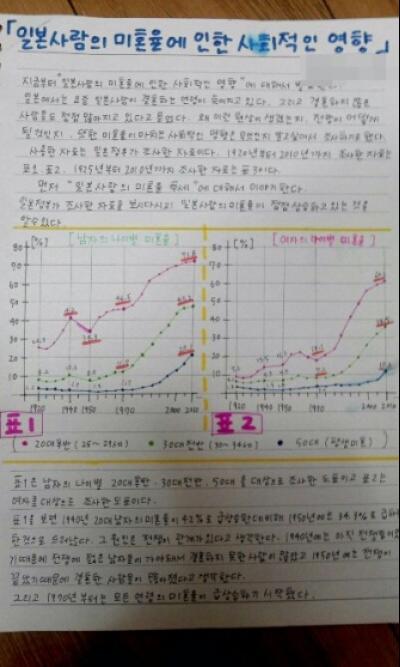 「일본사람의 미혼율에 인한 사회적인 영향」
지금부터 "일본사람의 미혼율에 인한 사회적인 영향"에 대해서
일본에서는 요즘 일본사람이 결혼하는 연령이 늦어지고 있다. 그리고 결혼하지 않은
사람들도 점점 많아지고 있다고 들었다. 왜 이런 현상이 생겼는지, 전망이 어떻게
될것인지, 또한 미혼율이 미치는 사회적인 영향은 무엇인지 알고싶어서 조사하기로 했다.
사용한 자료는 일본정부가 조사한 자료이다. 1920년부터 2010년까지 조사한 자료는
표1, 표2. 1975년부터 2010년까지 조사한 자료는 표3이다.
먼저 "일본사람의 미혼율 추세"에 대해서 이야기 한다.
일본정부가 조사한 자료를 보시다시피 일본사람의 미혼율이 점점 상승하고 있는 것을
알수있다.
[%] [남자의 나이별 미혼율]
[%] [여자의 나이별 미혼율]
80
70
60
50
40
30
20
10
0
1920 1940 1950 1970 2000 2010
1920 1940 1950 1970 2000 2010
표1
표2
• 20대후반 (25~29세) • 30대전반 (30~34세) • 50대 (평생미혼)
표1은 남자의 나이별 20대후반·30대전반·50대를 대상으로 조사한 도표이고 표2는
여자를 대상으로 조사한 도표이다.
표1을 보면 1940년 20대남자의 미혼율이 42%로 급상승한데비해 1950년에는 34.3%로
한것으로 드러났다. 그 원인은 전쟁이 관계가있다고 생각한다. 1940년에는 아직 전쟁중이었
기때문에 전쟁에 젊은 남자들이 가야돼서 결혼하지 못한 사람이 많았고 1950년에는 전쟁이
끝났기때문에 결혼한 사람들이 많아졌다고 생각한다.
그리고 1970년부터는 모든 연령의 미혼율이 급상승하기 시작했다.